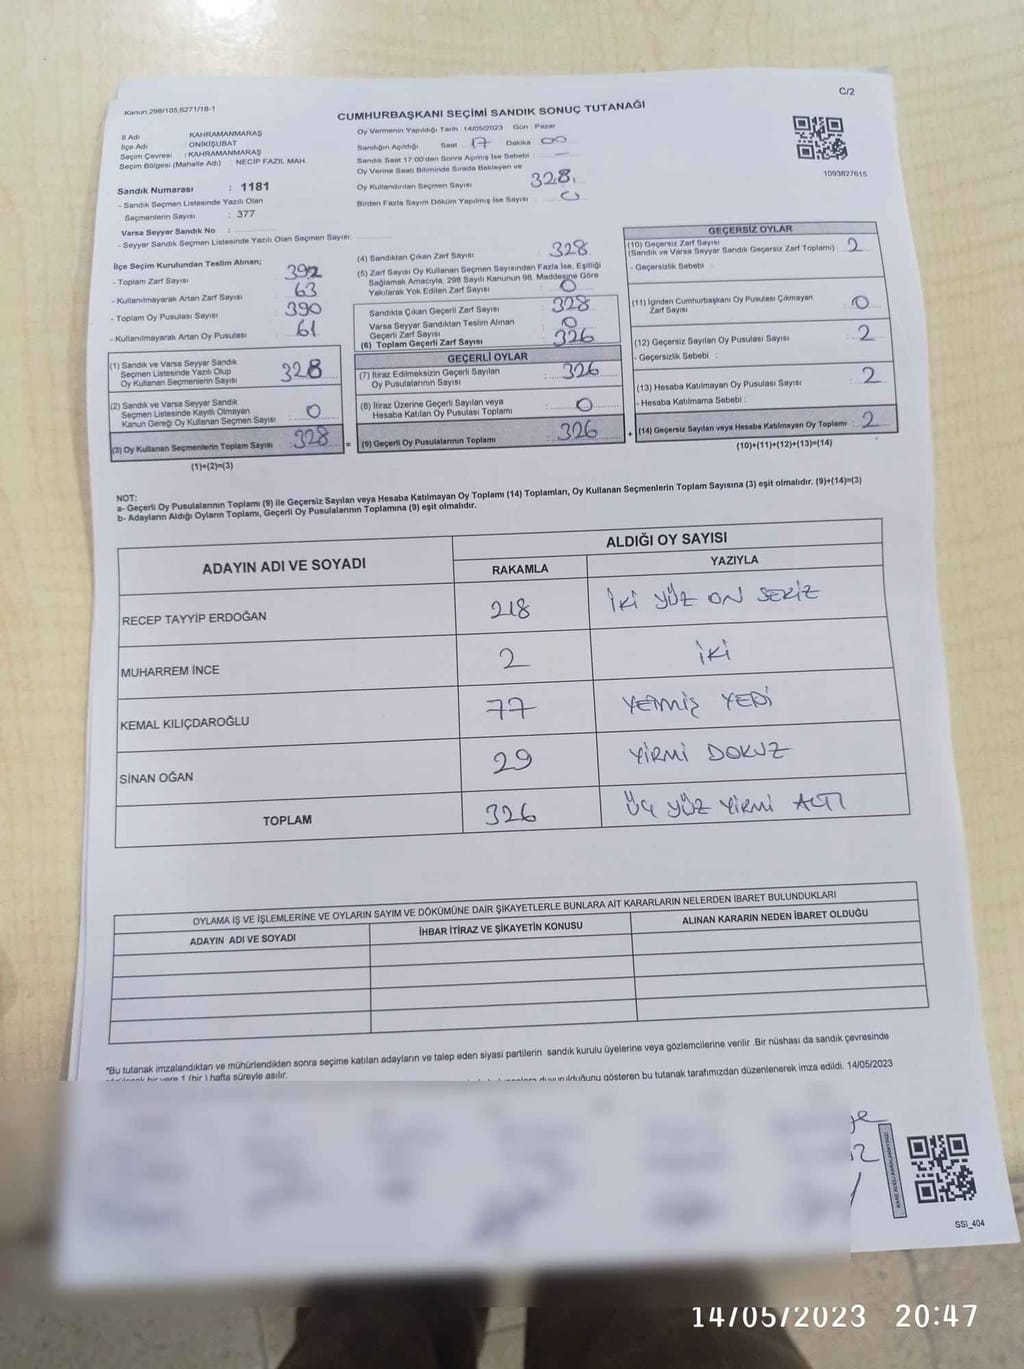 C/2
Kanun.298/105,6271/18-1
CUMHURBAŞKANI SEÇİMİ SANDIK SONUÇ TUTANAĞI
İl Adı : KAHRAMANMARAŞ
İlçe Adı : ONİKİŞUBAT
Seçim Çevresi : KAHRAMANMARAŞ
Seçim Bölgesi (Mahalle Adı) : NECİP FAZIL MAH.
Sandık Numarası : 1181
- Sandık Seçmen Listesinde Yazılı Olan
Seçmenlerin Sayısı : 377
Varsa Seyyar Sandık No :
- Seyyar Sandık Seçmen Listesinde Yazılı Olan Seçmen Sayısı:
Oy Vermenin Yapıldığı Tarih :14/05/2023 Gün : Pazar
Sandığın Açıldığı Saat 17 Dakika 00
Sandık Saat 17:00'den Sonra Açımış İse Sebebi —
Oy Verme Saati Bitiminde Sırada Bekleyen ve
Oy Kullandırılan Seçmen Sayısı 328
Birden Fazla Sayım Döküm Yapılmış İse Sayısı 0
1093827615
İlçe Seçim Kurulundan Teslim Alınan;
- Toplam Zarf Sayısı : 392
- Kullanılmayarak Artan Zarf Sayısı : 63
- Toplam Oy Pusulası Sayısı : 390
- Kullanılmayarak Artan Oy Pusulası : 61
(1) Sandık ve Varsa Seyyar Sandık
Seçmen Listesinde Yazılı Olup
Oy Kullanan Seçmenlerin Sayısı : 328
(2) Sandık ve Varsa Seyyar Sandık
Seçmen Listesinde Kayıtlı Olmayan
Kanun Gereği Oy Kullanan Seçmen Sayısı : 0
(3) Oy Kullanan Seçmenlerin Toplam Sayısı : 328
(1)+(2)=(3)
(4) Sandıktan Çıkan Zarf Sayısı : 328
(5) Zarf Sayısı Oy Kullanan Seçmen Sayısından Fazla İse, Eşitliği
Sağlamak Amacıyla, 298 Sayılı Kanunun 98. Maddesine Göre
Yakılarak Yok Edilen Zarf Sayısı : 0
Sandıkta Çıkan Geçerli Zarf Sayısı : 328
Varsa Seyyar Sandıktan Teslim Alınan
Geçerli Zarf Sayısı : 0
(6) Toplam Geçerli Zarf Sayısı : 326
GEÇERLİ OYLAR
(7) İtiraz Edilmeksizin Geçerli Sayılan
Oy Pusulalarının Sayısı : 326
(8) İtiraz Üzerine Geçerli Sayılan veya
Hesaba Katılan Oy Pusulası Toplamı : 0
= (9) Geçerli Oy Pusulalarının Toplamı : 326
GEÇERSİZ OYLAR
(10) Geçersiz Zarf Sayısı
(Sandık ve Varsa Seyyar Sandık Geçersiz Zarf Toplamı) : 2
- Geçersizlik Sebebi :
(11) İçinden Cumhurbaşkanı Oy Pusulası Çıkmayan
Zarf Sayısı : 0
(12) Geçersiz Sayılan Oy Pusulası Sayısı : 2
- Geçersizlik Sebebi :
(13) Hesaba Katılmayan Oy Pusulası Sayısı : 2
- Hesaba Katılmama Sebebi :
+ (14) Geçersiz Sayılan veya Hesaba Katılmayan Oy Toplamı : 2
(10)+(11)+(12)+(13)=(14)
NOT:
a- Geçerli Oy Pusulalarının Toplamı (9) ile Geçersiz Sayılan veya Hesaba Katılmayan Oy Toplamı (14) Toplamları, Oy Kullanan Seçmenlerin Toplam Sayısına (3) eşit olmalıdır. (9)+(14)=(3)
b- Adayların Aldığı Oyların Toplamı, Geçerli Oy Pusulalarının Toplamına (9) eşit olmalıdır.
ADAYIN ADI VE SOYADI ALDIĞI OY SAYISI
RAKAMLA YAZIYLA
RECEP TAYYİP ERDOĞAN 218 İKİ YÜZ ON SEKİZ
MUHARREM İNCE 2 İKİ
KEMAL KILIÇDAROĞLU 77 YETMİŞ YEDİ
SİNAN OĞAN 29 YİRMİ DOKUZ
TOPLAM 326 ÜÇ YÜZ YİRMİ ALTI
OYLAMA İŞ VE İŞLEMLERİNE VE OYLARIN SAYIM VE DÖKÜMÜNE DAİR ŞİKAYETLERLE BUNLARA AİT KARARLARIN NELERDEN İBARET BULUNDUKLARI
ADAYIN ADI VE SOYADI İHBAR İTİRAZ VE ŞİKAYETİN KONUSU ALINAN KARARIN NEDEN İBARET OLDUĞU
*Bu tutanak imzalandıktan ve mühürlendikten sonra seçime katılan adayların ve talep eden siyasi partilerin sandık kurulu üyelerine veya gözlemcilerine verilir .Bir nüshası da sandık çevresinde
bir yere 1 (bir ) hafta süreyle asılır.
duyurulduğunu gösteren bu tutanak tarafımızdan düzenlenerek imza edildi. 14/05/2023
SSI_404
14/05/2023 20:47